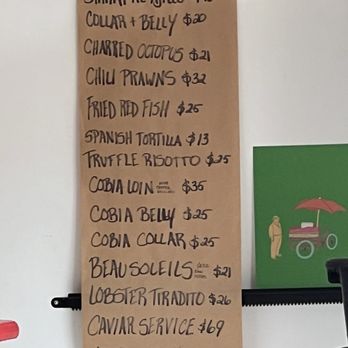 COLLAR + BELLY $20
CHARRED OCTOPUS $21
CHILI PRAWNS $32
FRIED RED FISH $25
SPANISH TORTILLA $13
TRUFFLE RISOTTO $25
COBIA LOIN $35
COBIA BELLY $25
COBIA COLLAR $25
BEAUSOLEILS $21
LOBSTER TIRADITO $26
CAVIAR SERVICE $69